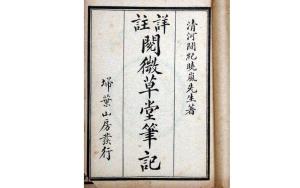 清河閱紀曉嵐先生著
詳註閱微草堂筆記
埽葉山房發行